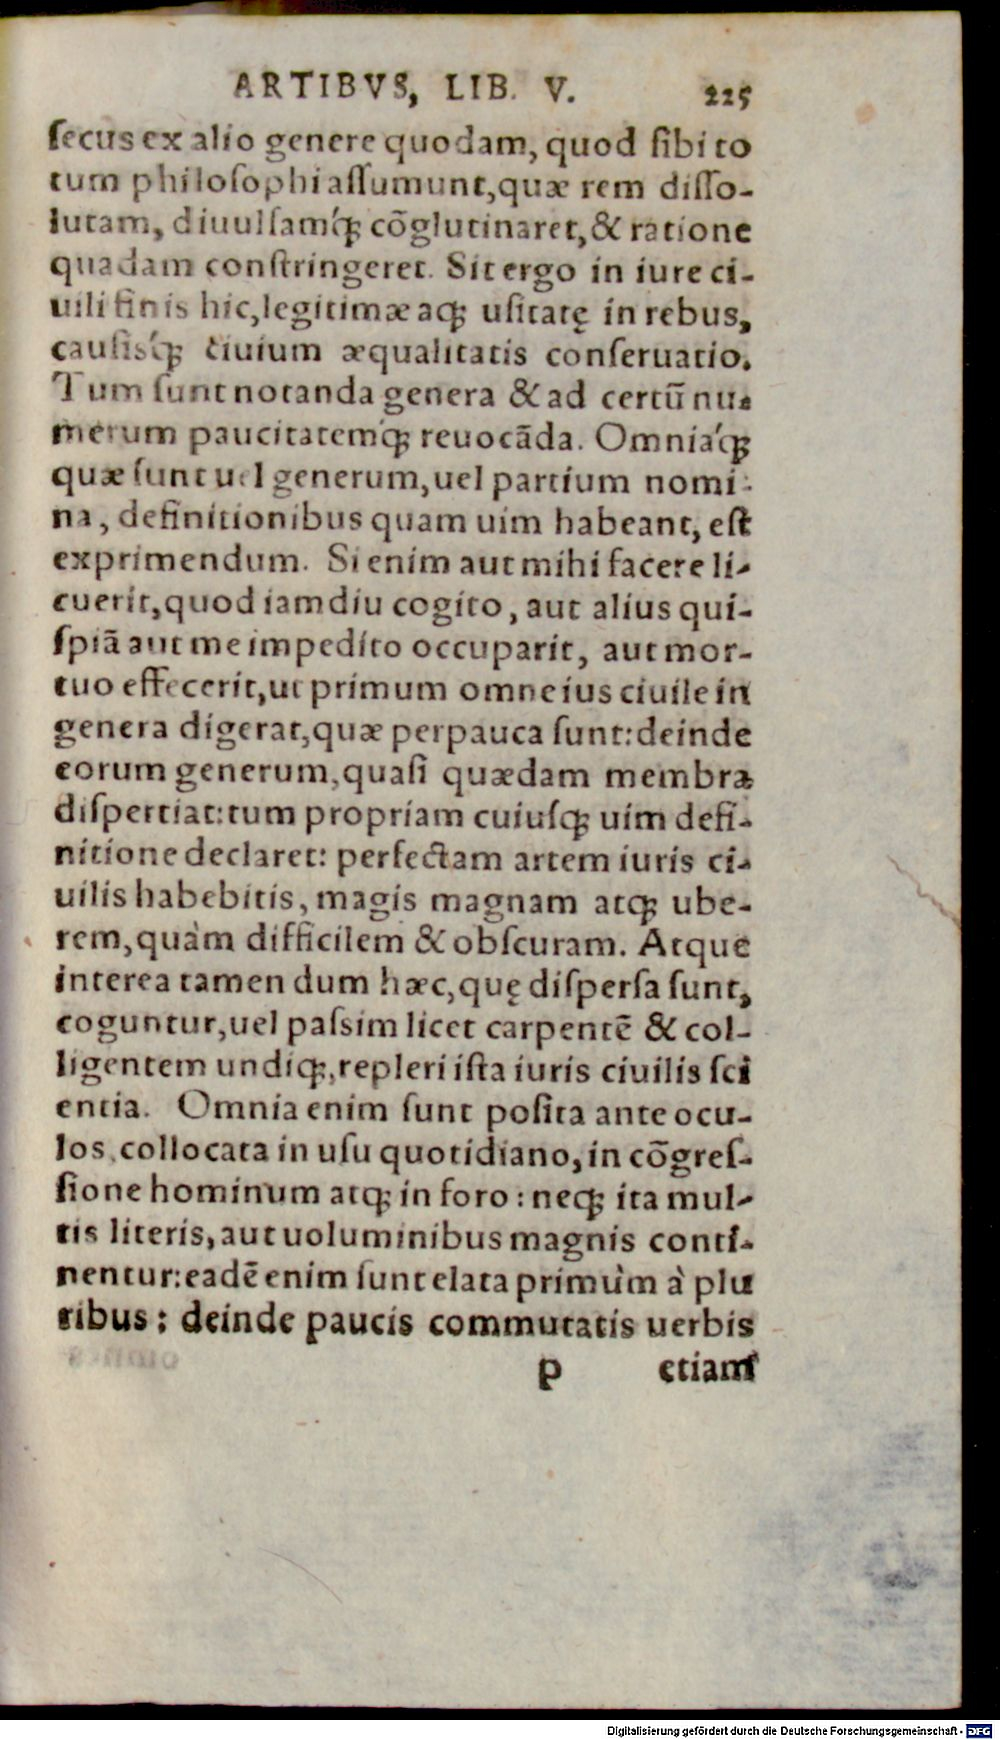 ARTIBVS, LIB. V. 225
ſecus ex alio genere quodam, quod ſibi to
tum philoſophi aſſumunt, quæ rem diſſo-
lutam, diuulſamq́; cōglutinaret, & ratione
quadam conſtringeret. Sit ergo in iure ci-
uili finis hic, legitimæ atq; uſitatę in rebus,
cauſisq́; ciuium æqualitatis conſeruatio.
Tum ſunt notanda genera & ad certū nu-
merum paucitatemq́; reuocāda. Omniaq́;
quæ ſunt uel generum, uel partium nomi-
na, definitionibus quam uim habeant, eſt
exprimendum. Si enim aut mihi facere li-
cuerit, quod iamdiu cogito, aut alius qui-
ſpiā aut me impedito occuparit, aut mor-
tuo effecerit, ut primum omne ius ciuile in
genera digerat, quæ perpauca ſunt: deinde
eorum generum, quaſi quædam membra
diſpertiat: tum propriam cuiuſq; uim defi-
nitione declaret: perfectam artem iuris ci-
uilis habebitis, magis magnam atq; ube-
rem, quàm difficilem & obſcuram. Atque
interea tamen dum hæc, quę diſperſa ſunt,
coguntur, uel paſsim licet carpentē & col-
ligentem undiq;, repleri iſta iuris ciuilis ſci
entia. Omnia enim ſunt poſita ante ocu-
los, collocata in uſu quotidiano, in cōgreſ-
ſione hominum atq; in foro: neq; ita mul-
tis literis, aut uoluminibus magnis conti-
nentur: eadē enim ſunt elata primùm à plu
ribus: deinde paucis commutatis uerbis
p etiam
Digitalisierung gefördert durch die Deutsche Forschungsgemeinschaft - DFG